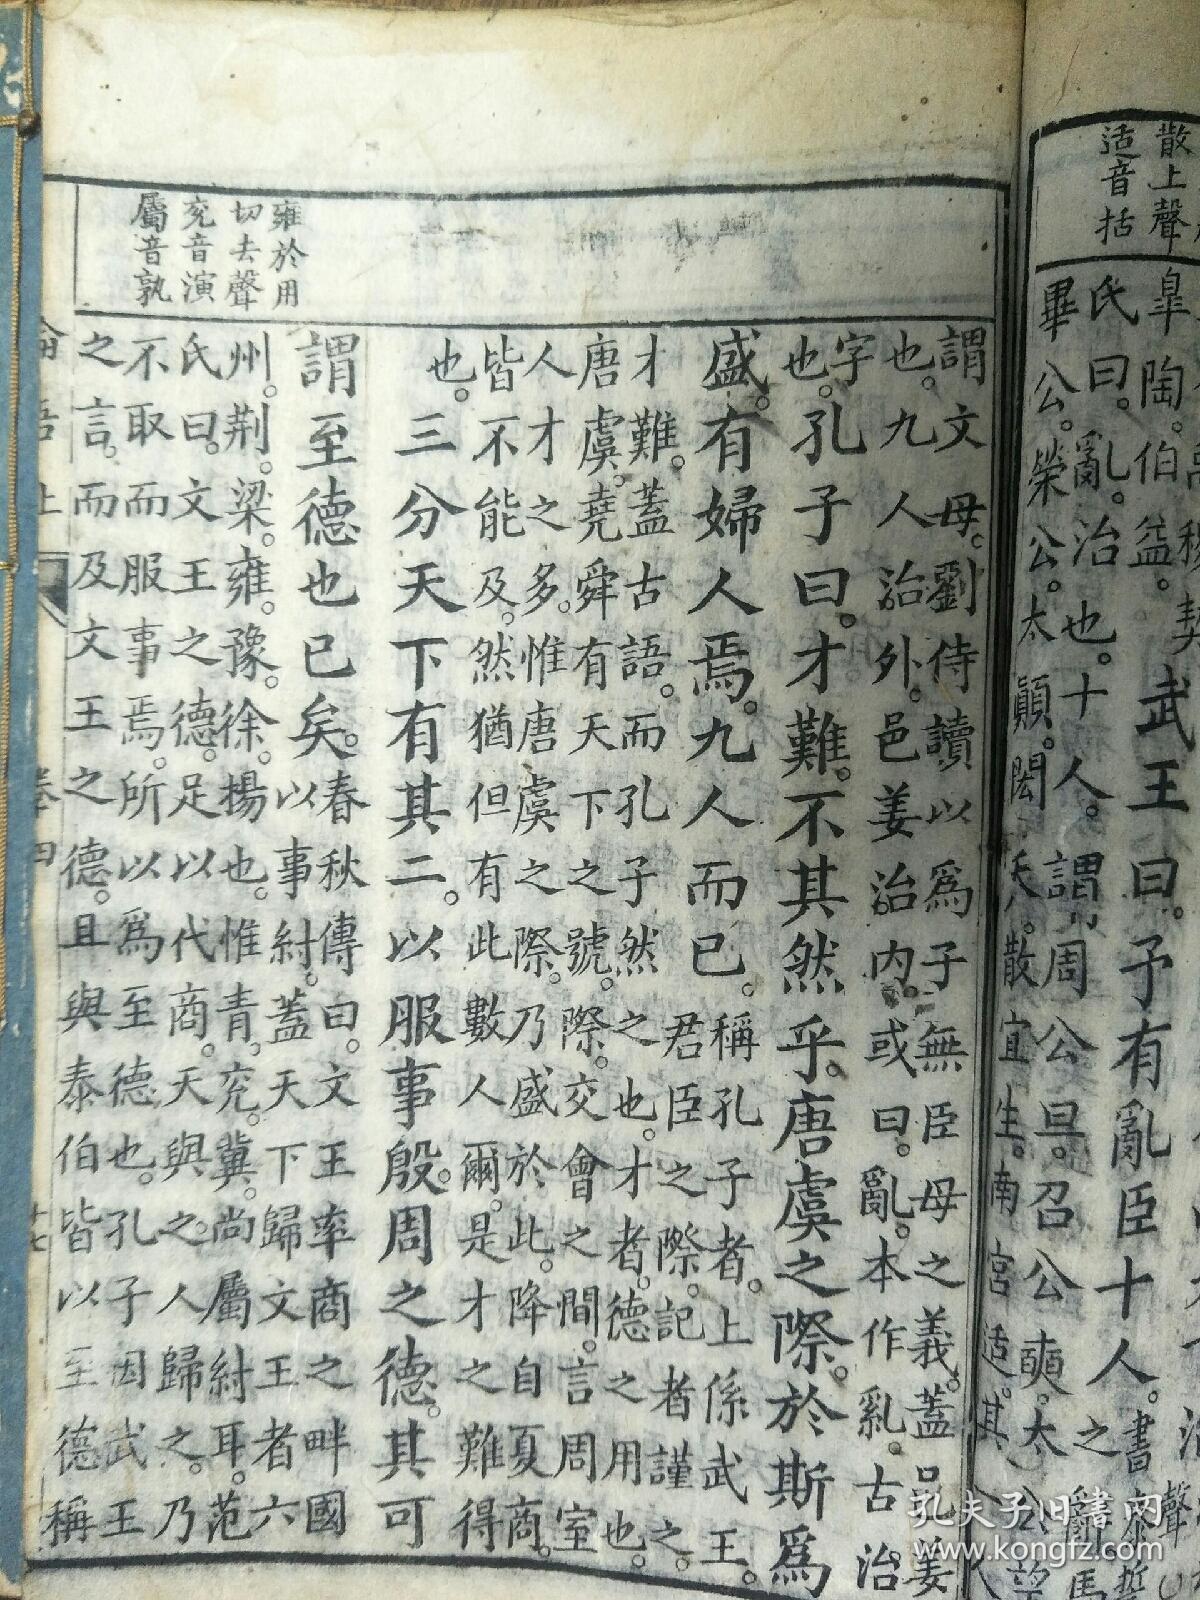 散上聲
适音括
武王曰。予有亂臣十人。書泰誓
之辭。馬
氏曰。亂。治也。十人。謂周公旦。召公奭。太公望。
畢公。榮公。太顛。閎夭。散宜生。南宮适。其一人
雍於用
切去聲
兗音演
屬音孰
謂文母。劉侍讀以爲子無臣母之義。蓋邑姜
也。九人治外。邑姜治內。或曰。亂。本作乿。古治
字也。
孔子曰。才難。不其然乎。唐虞之際。於斯爲
盛。有婦人焉。九人而已。
稱孔子者。上係武王。
君臣之際。記者謹之。
才難。蓋古語。而孔子然之也。才者。德之用也。
唐虞。堯舜有天下之號。際。交會之間。言周室
人才之多。惟唐虞之際。乃盛於此。降自夏商。
皆不能及。然猶但有此數人爾。是才之難得
也。
三分天下有其二。以服事殷。周之德。其可
謂至德也已矣。
春秋傳曰。文王率商之畔國
以事紂。蓋天下歸文王者六
州。荆。梁。雍。豫。徐。揚也。惟青。兗。冀。尚屬紂耳。范
氏曰。文王之德。足以代商。天與之。人歸之。乃
不取而服事焉。所以爲至德也。孔子因武王
之言。而及文王之德。且與泰伯皆以至德稱
論語上
卷四
十七
孔夫子旧書网
www.kongfz.com